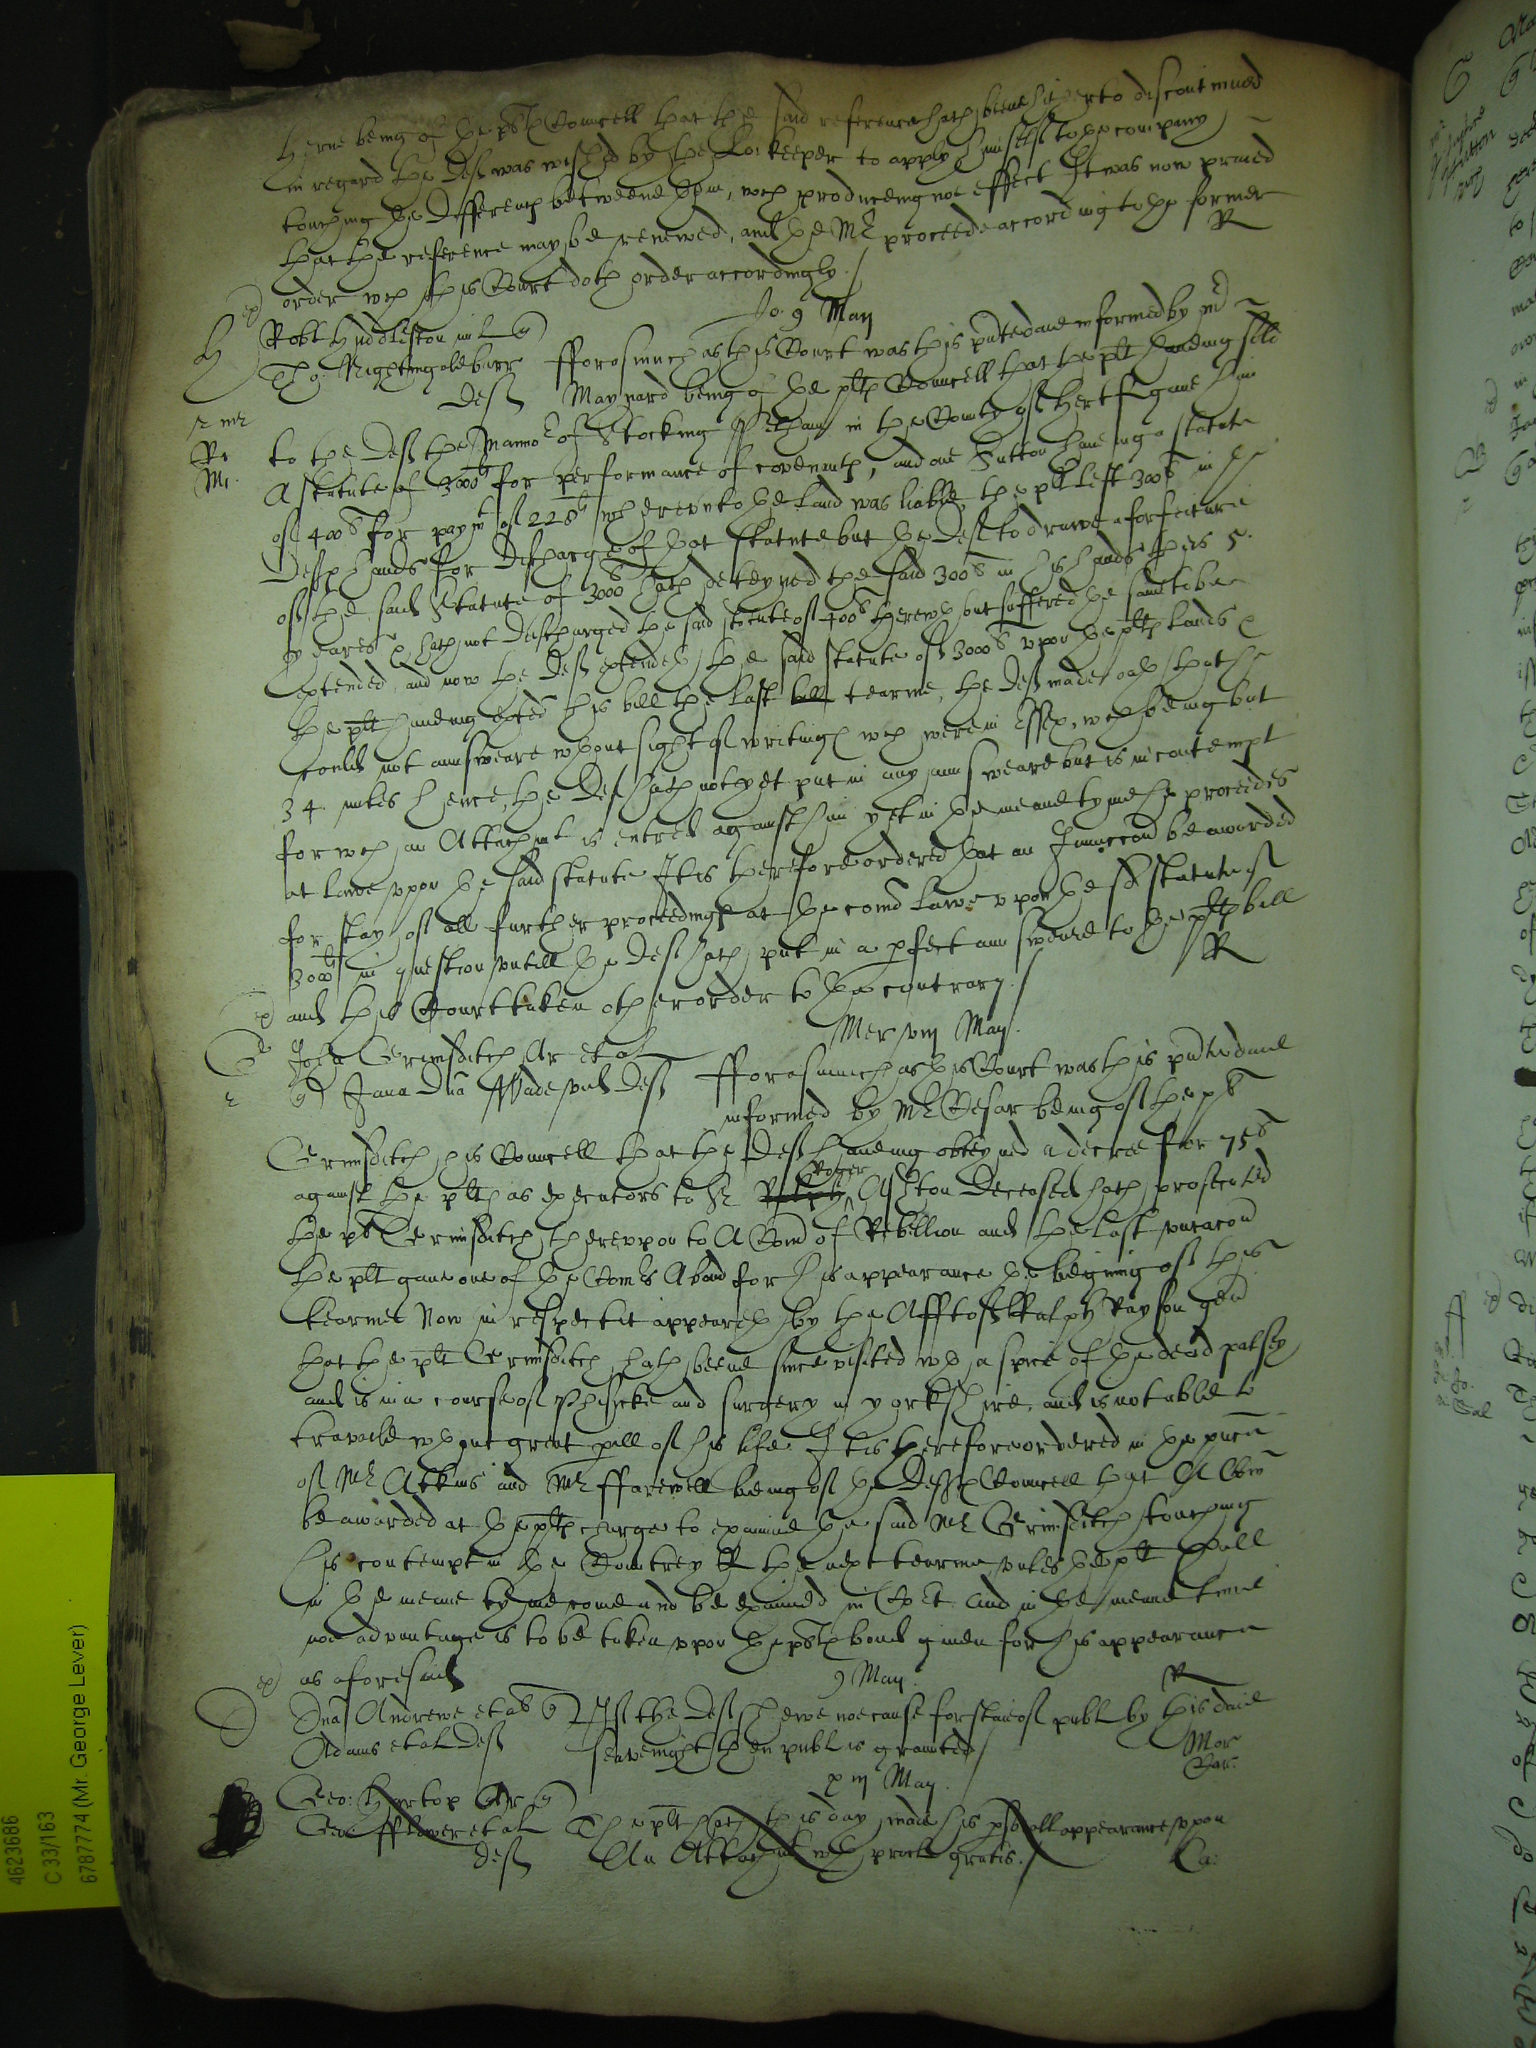 Herne being of the plts Councell that the said reference hath beene hitherto discontinued
in regard the deft was wished by the Lo: keeper to apply himselfe to the company
touching the differences betweene them, wch produceing noe effect It was now prayed
that the reference may be renewed, and the Mr proceede according to the former
order wch this Court doth order accordingly./ R
Jo. 9 May
Robt Huddleston mil q
Tho: Nightingale barr fforasmuch as this Court was this pñte daie informed by mr
deft Maynard being of the plts Councell that the plt haveing sold
to the deft the Mannor of Stocking Pelham in the County of Hertf gave him
A statute of 3000li for performance of covenants, and one Sutton haveing a statute
of 400li for paymt of 228li wherevnto the land was liable the plt left 300li in the
defts hands for discharge of that statute but the deft to drawe a forfeiture
of the said Statute of 3000li hath deteyned the said 300li in his hands theis 5.
yeares & hath not discharged the said statute of 400li therewth but suffered the same to be
extended, and now the deft extendeth the said statute of 3000li vpon the plts lands &
the plt haveing exħted his bill the last bill tearme, the deft made oath that he
could not aunsweare wthout sight of writings wch were in Essex, wch being but
34 miles hence, the deft hath not yet put in any aunsweare but is in contempt
for wch an Attachmt is entred against him yet in the meane tyme he proceedes
at lawe vpon the said statute It is therefore ordered that an Iniunccon be awarded
for stay of all further proceedings at the comõ lawe vpon the sd statute of
3000li in question vntill the deft hath put in a pfect aunsweare to the plts bill
and this Court taken other order to the contrary./ R
Mer viij May.
John Grimsditch Ar et al
q Jana Dña Wade vid deft fforasmuch as this Court was this pñte daie
informed by Mr Cesar being of the plt
Grimsditch his Councell that the deft haveing obteyned a decree for 75li
against the plts as executors to Sr Roger Ashton deceased hath prosecuted
the plt Grimsditch therevpon to A Com̃ of Rebellion and the last vacacon
the plt gave one of the Comrs A bond for his appearance the begining of this
tearme Now in respect it appeareth by the Affit of Ralph Rayson gen
that the plt Grimsditch hath beene since visited wth a spice of the dead palsey
and is in a course of Phisicke and surgery in Yorkshire, and is not able to
travaile wthout great pill of his life It is therefore ordered in the pñce
of Mr Atkins and Mr ffarewell being of the defts Councell that A Com̃
be awarded at the plts charge to examine the said Mr Grimsditch touching
his contempt in the Countrey R the next tearme vnles the plt shall
in the meane tyme come and be examined in Cort And in the meane time
noe advantage is to be taken vpon the plts bond given for his appearance
as aforesaid R
9 May.
Dña Andrewe et al q If the deft shewe noe cause for staie of publ by this daie
Adams et al deft seavenight then publ is graunted/ Mor
Car.
xiij May.
Geo: Hartop Ar q
Geo: fflower et al The plt hath this day made his psoall appearance vpon
deft An Attachmt wth procls gratis./ Ca:
4623686
C 33/163
6787774 (Mr. George Lever)